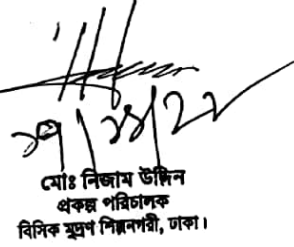 মোঃ নিজাম উদ্দিন
প্রকল্প পরিচালক
বিসিক মুদ্রণ শিল্পনগরী, ঢাকা।